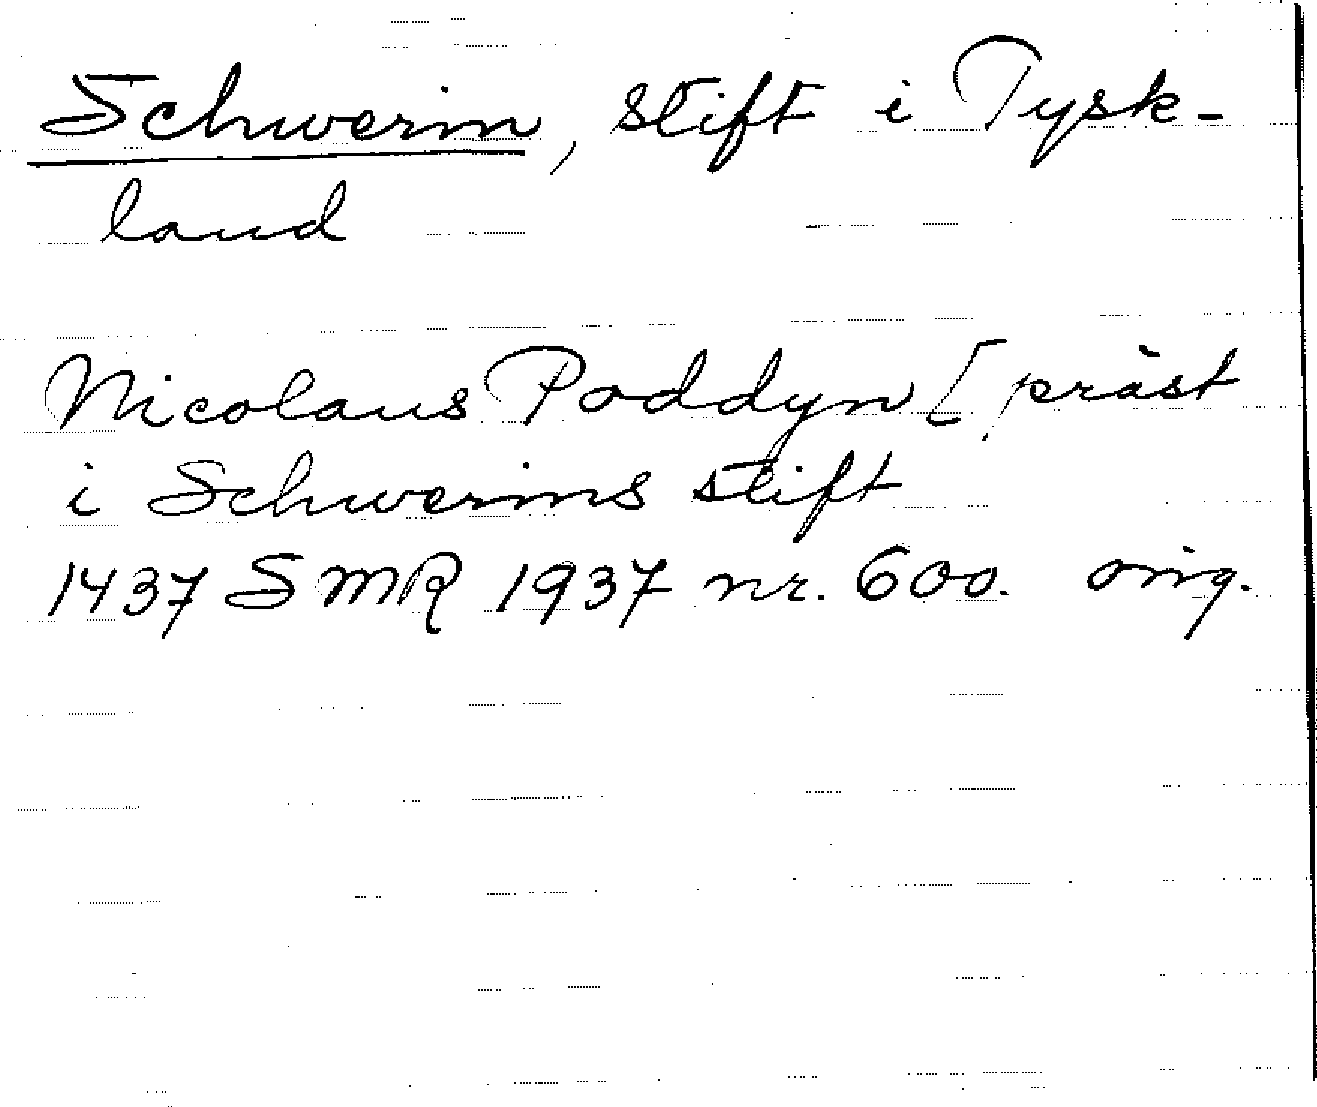 Schwerin, stift i Tysk-
land
Nicolaus Poddyn [präst
i Schwerins stift
1437 SMR 1937 nr. 600. orig.